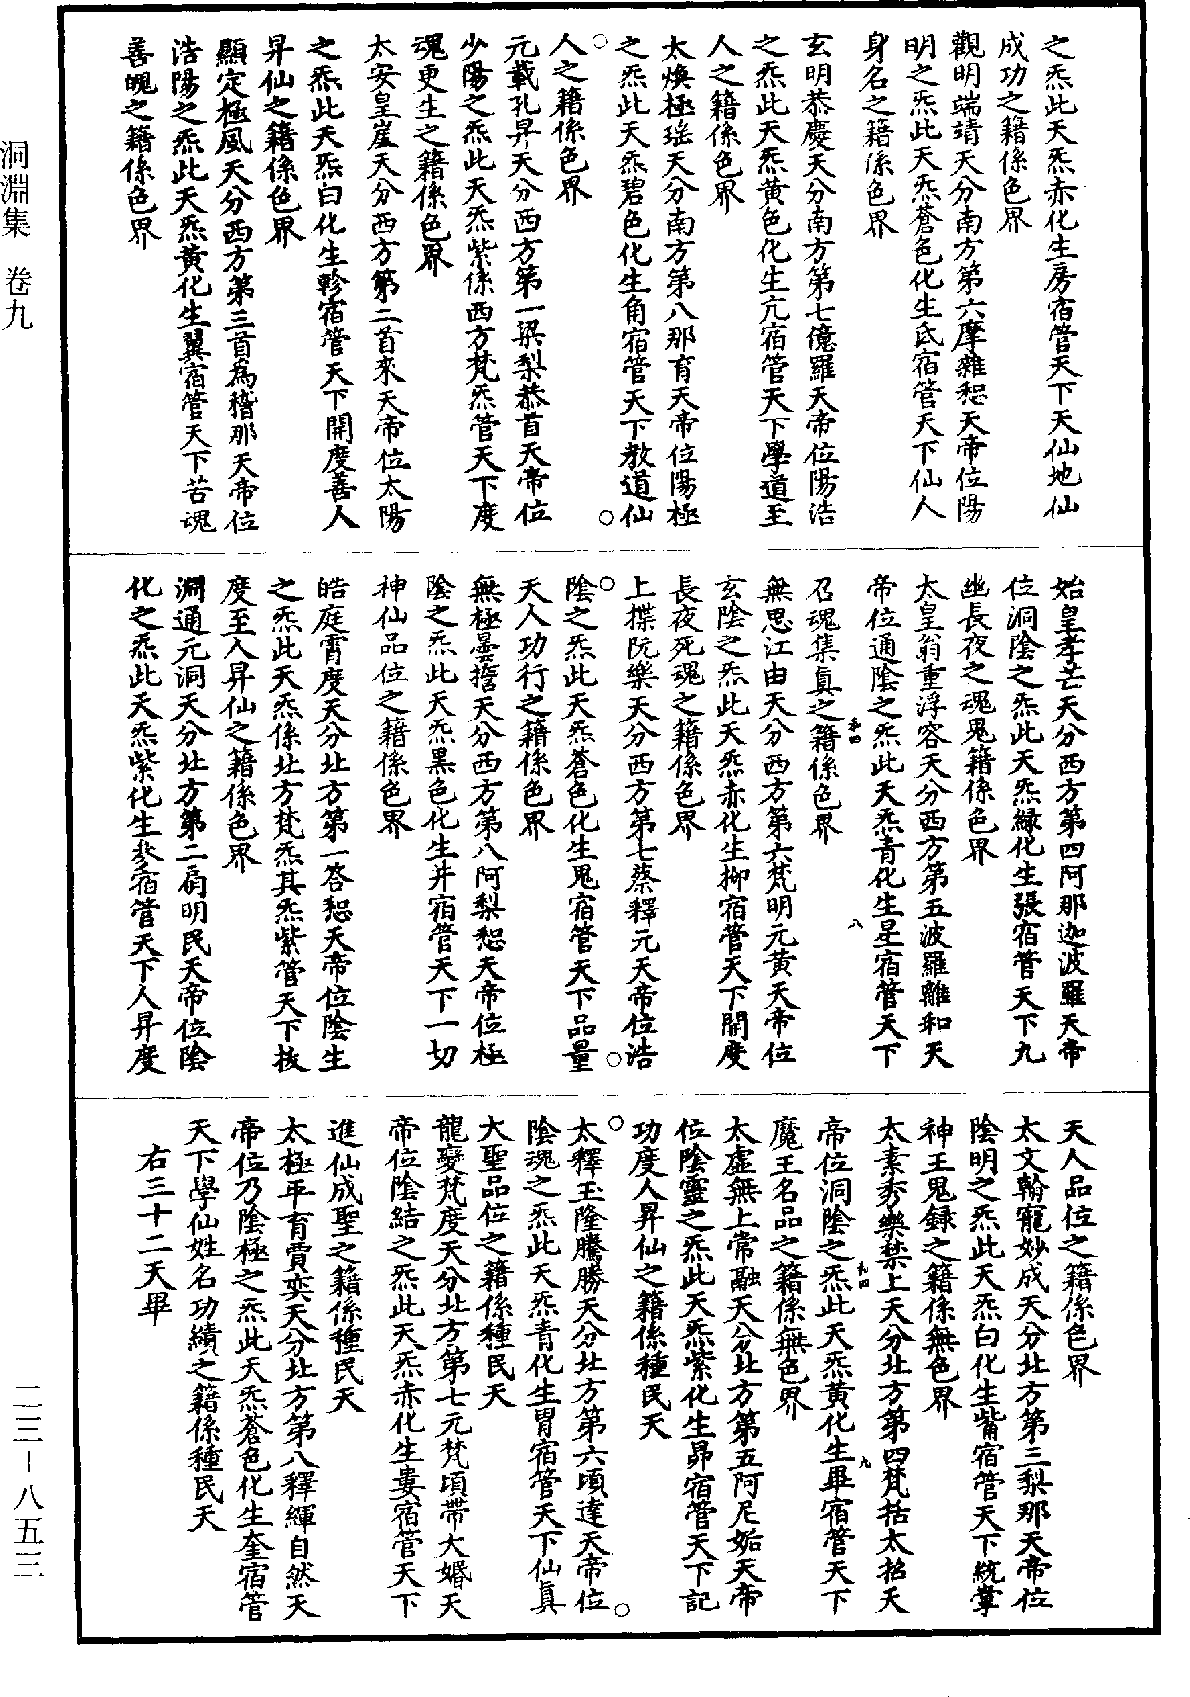 洞淵集 卷九
之炁此天炁赤化生房宿管天下天仙地仙
成功之籍係色界
觀明端靖天分南方第六摩雜恕天帝位陽
明之炁此天炁蒼色化生氐宿管天下仙人
身名之籍係色界
玄明恭慶天分南方第七億羅天帝位陽浩
之炁此天炁黄色化生亢宿管天下學道至
人之籍係色界
太煥極瑶天分南方第八那育天帝位陽極
之炁此天炁碧色化生角宿管天下教道仙
人之籍係色界
元載孔昇天分西方第一梁梨恭首天帝位
少陽之炁此天炁紫係西方梵炁管天下度
魂更生之籍係色界
太安皇崖天分西方第二首來天帝位太陽
之炁此天炁白化生軫宿管天下開度善人
昇仙之籍係色界
顯定極風天分西方第三首爲稽那天帝位
浩陽之炁此天炁黄化生翼宿管天下苦魂
善魄之籍係色界
始皇孝芒天分西方第四阿那迦波羅天帝
位洞陰之炁此天炁緑化生張宿管天下九
幽長夜之魂鬼籍係色界
太皇翁重浮容天分西方第五波羅離和天
帝位通陰之炁此天炁青化生星宿管天下
召魂集真之籍係色界
無思江由天分西方第六梵明元黄天帝位
玄陰之炁此天炁赤化生柳宿管天下開度
長夜死魂之籍係色界
上揲阮樂天分西方第七蔡釋元天帝位浩
陰之炁此天炁蒼色化生鬼宿管天下品量
天人功行之籍係色界
無極曇誓天分西方第八阿梨恕天帝位極
陰之炁此天炁黑色化生井宿管天下一切
神仙品位之籍係色界
皓庭霄度天分北方第一答恕天帝位陰生
之炁此天炁係北方梵炁其炁紫管天下拔
度至人昇仙之籍係色界
淵通元洞天分北方第二扇明民天帝位陰
化之炁此天炁紫化生參宿管天下人昇度
天人品位之籍係色界
太文翰寵妙成天分北方第三梨那天帝位
陰明之炁此天炁白化生觜宿管天下統掌
神王鬼録之籍係無色界
太素秀樂禁上天分北方第四梵括太招天
帝位洞陰之炁此天炁黄化生畢宿管天下
魔王名品之籍係無色界
太虚無上常融天分北方第五阿尼姤天帝
位陰靈之炁此天炁紫化生昴宿管天下記
功度人昇仙之籍係種民天
太釋玉隆騰勝天分北方第六頃達天帝位
陰魂之炁此天炁青化生胃宿管天下仙真
大聖品位之籍係種民天
龍變梵度天分北方第七元梵頃帶大婚天
帝位陰結之炁此天炁赤化生婁宿管天下
進仙成聖之籍係種民天
太極平育賈奕天分北方第八釋緷自然天
帝位乃陰極之炁此天炁蒼色化生奎宿管
天下學仙姓名功績之籍係種民天
右三十二天畢
二三－八五三